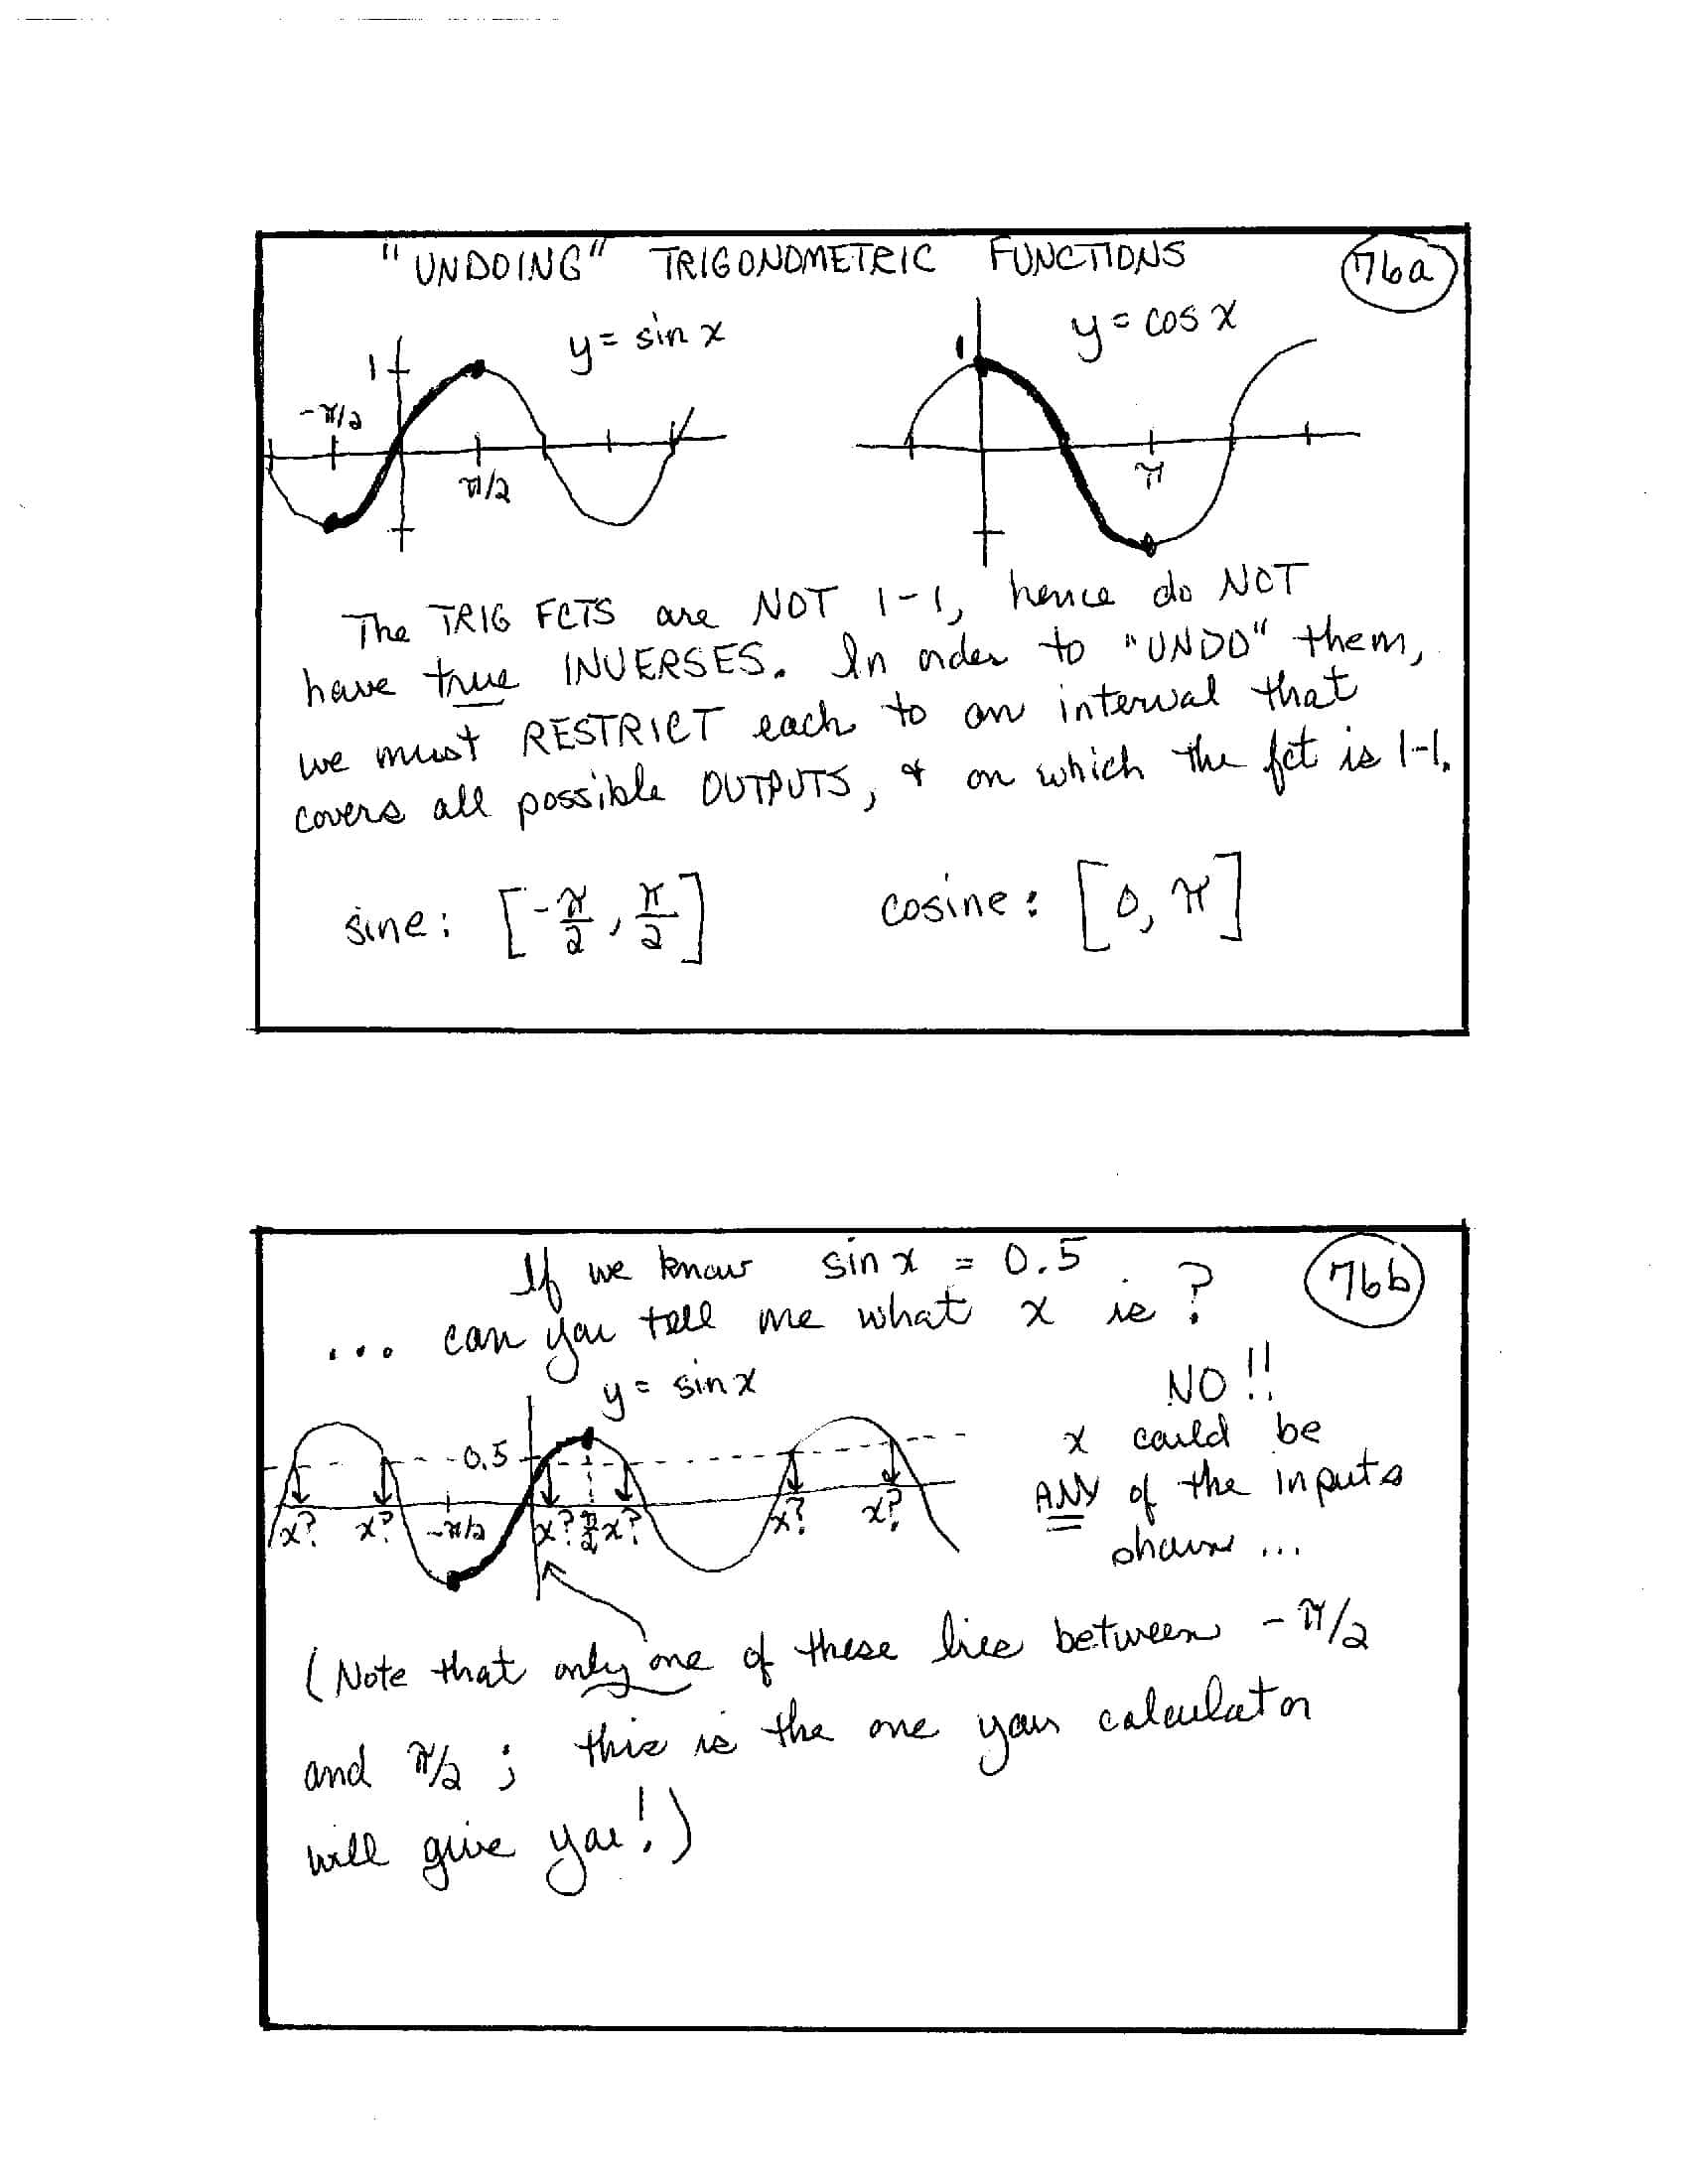 "UNDOING" TRIGONOMETRIC FUNCTIONS
76a
y = sin x
y = cos x
1
-π/2
π/2
1
π
The TRIG FCTS are NOT 1-1, hence do NOT
have true INVERSES. In order to "UNDO" them,
we must RESTRICT each to an interval that
covers all possible OUTPUTS, & on which the fct is 1-1.
sine: [-π/2, π/2]
cosine: [0, π]
If we know sin x = 0.5
76b
... can you tell me what x is?
y = sin x
NO!!
x could be
ANY of the inputs
shown ...
0.5
x? x? -π/2 x? π/2 x? x? x?
(Note that only one of these lies between -π/2
and π/2; this is the one your calculator
will give you!)